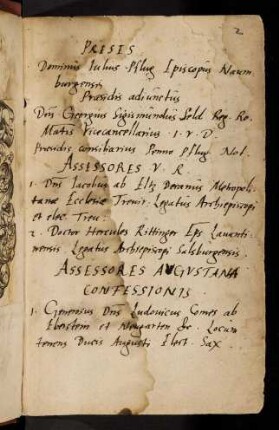 2
PRESES
Dominus Iulius Pflug Episcopus Naum
burgensis
Præsidis adiunctus
Dns Georgius Sigismundus Seld Reg. Ro.
Matis Vicecancellarius I. V. D.
Præsidis consiliarius Penno Pflug. Nob.
ASSESSORES V. R
1. Dns Iacobus ab Eltz Decanus Metropoli
tanæ Ecclesiæ Trevir. Legatus Archiepiscopi
et elec. Trev.
2. Doctor Hercules Rittinger Eps Lavanti
nensis. Legatus Archiepiscopi Salsburgensis.
ASSESSORES AVGVSTANÆ
CONFESSIONIS
1. Generosus Dns Ludovicus Comes ab
Eberstein et Neugarten &c. Locum
tenens Ducis Augusti Elect. Sax.